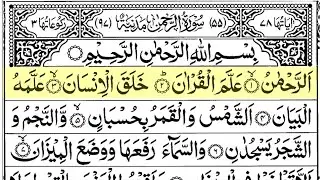 اٰیاتھا ٧٨ (٥٥) سُوْرَۃُ الرَّحْمٰنِ مَدَنِیَّۃٌ (٩٧) رکوعاتھا ٣
بِسْمِ اللّٰهِ الرَّحْمٰنِ الرَّحِيْمِ
اَلرَّحْمٰنُ ۙ‏﴿۱﴾ عَلَّمَ الْقُرْاٰنَ ؕ‏﴿۲﴾ خَلَقَ الْاِنْسَانَ ۙ‏﴿۳﴾ عَلَّمَهُ
الْبَيَانَ ﴿۴﴾ اَلشَّمْسُ وَالْقَمَرُ بِحُسْبَانٍ ﴿۵﴾ وَّالنَّجْمُ وَ
الشَّجَرُ يَسْجُدٰنِ ﴿۶﴾ وَالسَّمَآءَ رَفَعَهَا وَوَضَعَ الْمِيْزَانَ ﴿۷﴾